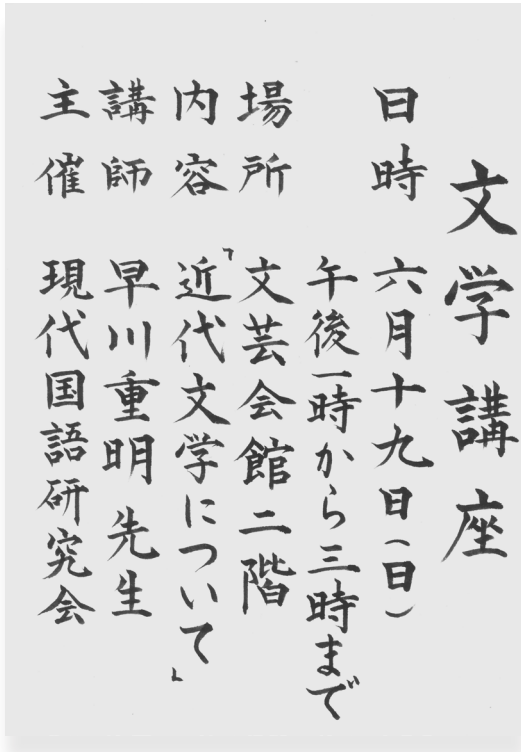 文学講座
日時 六月十九日(日)
午後一時から三時まで
場所 文芸会館二階
内容 「近代文学について」
講師 早川重明先生
主催 現代国語研究会